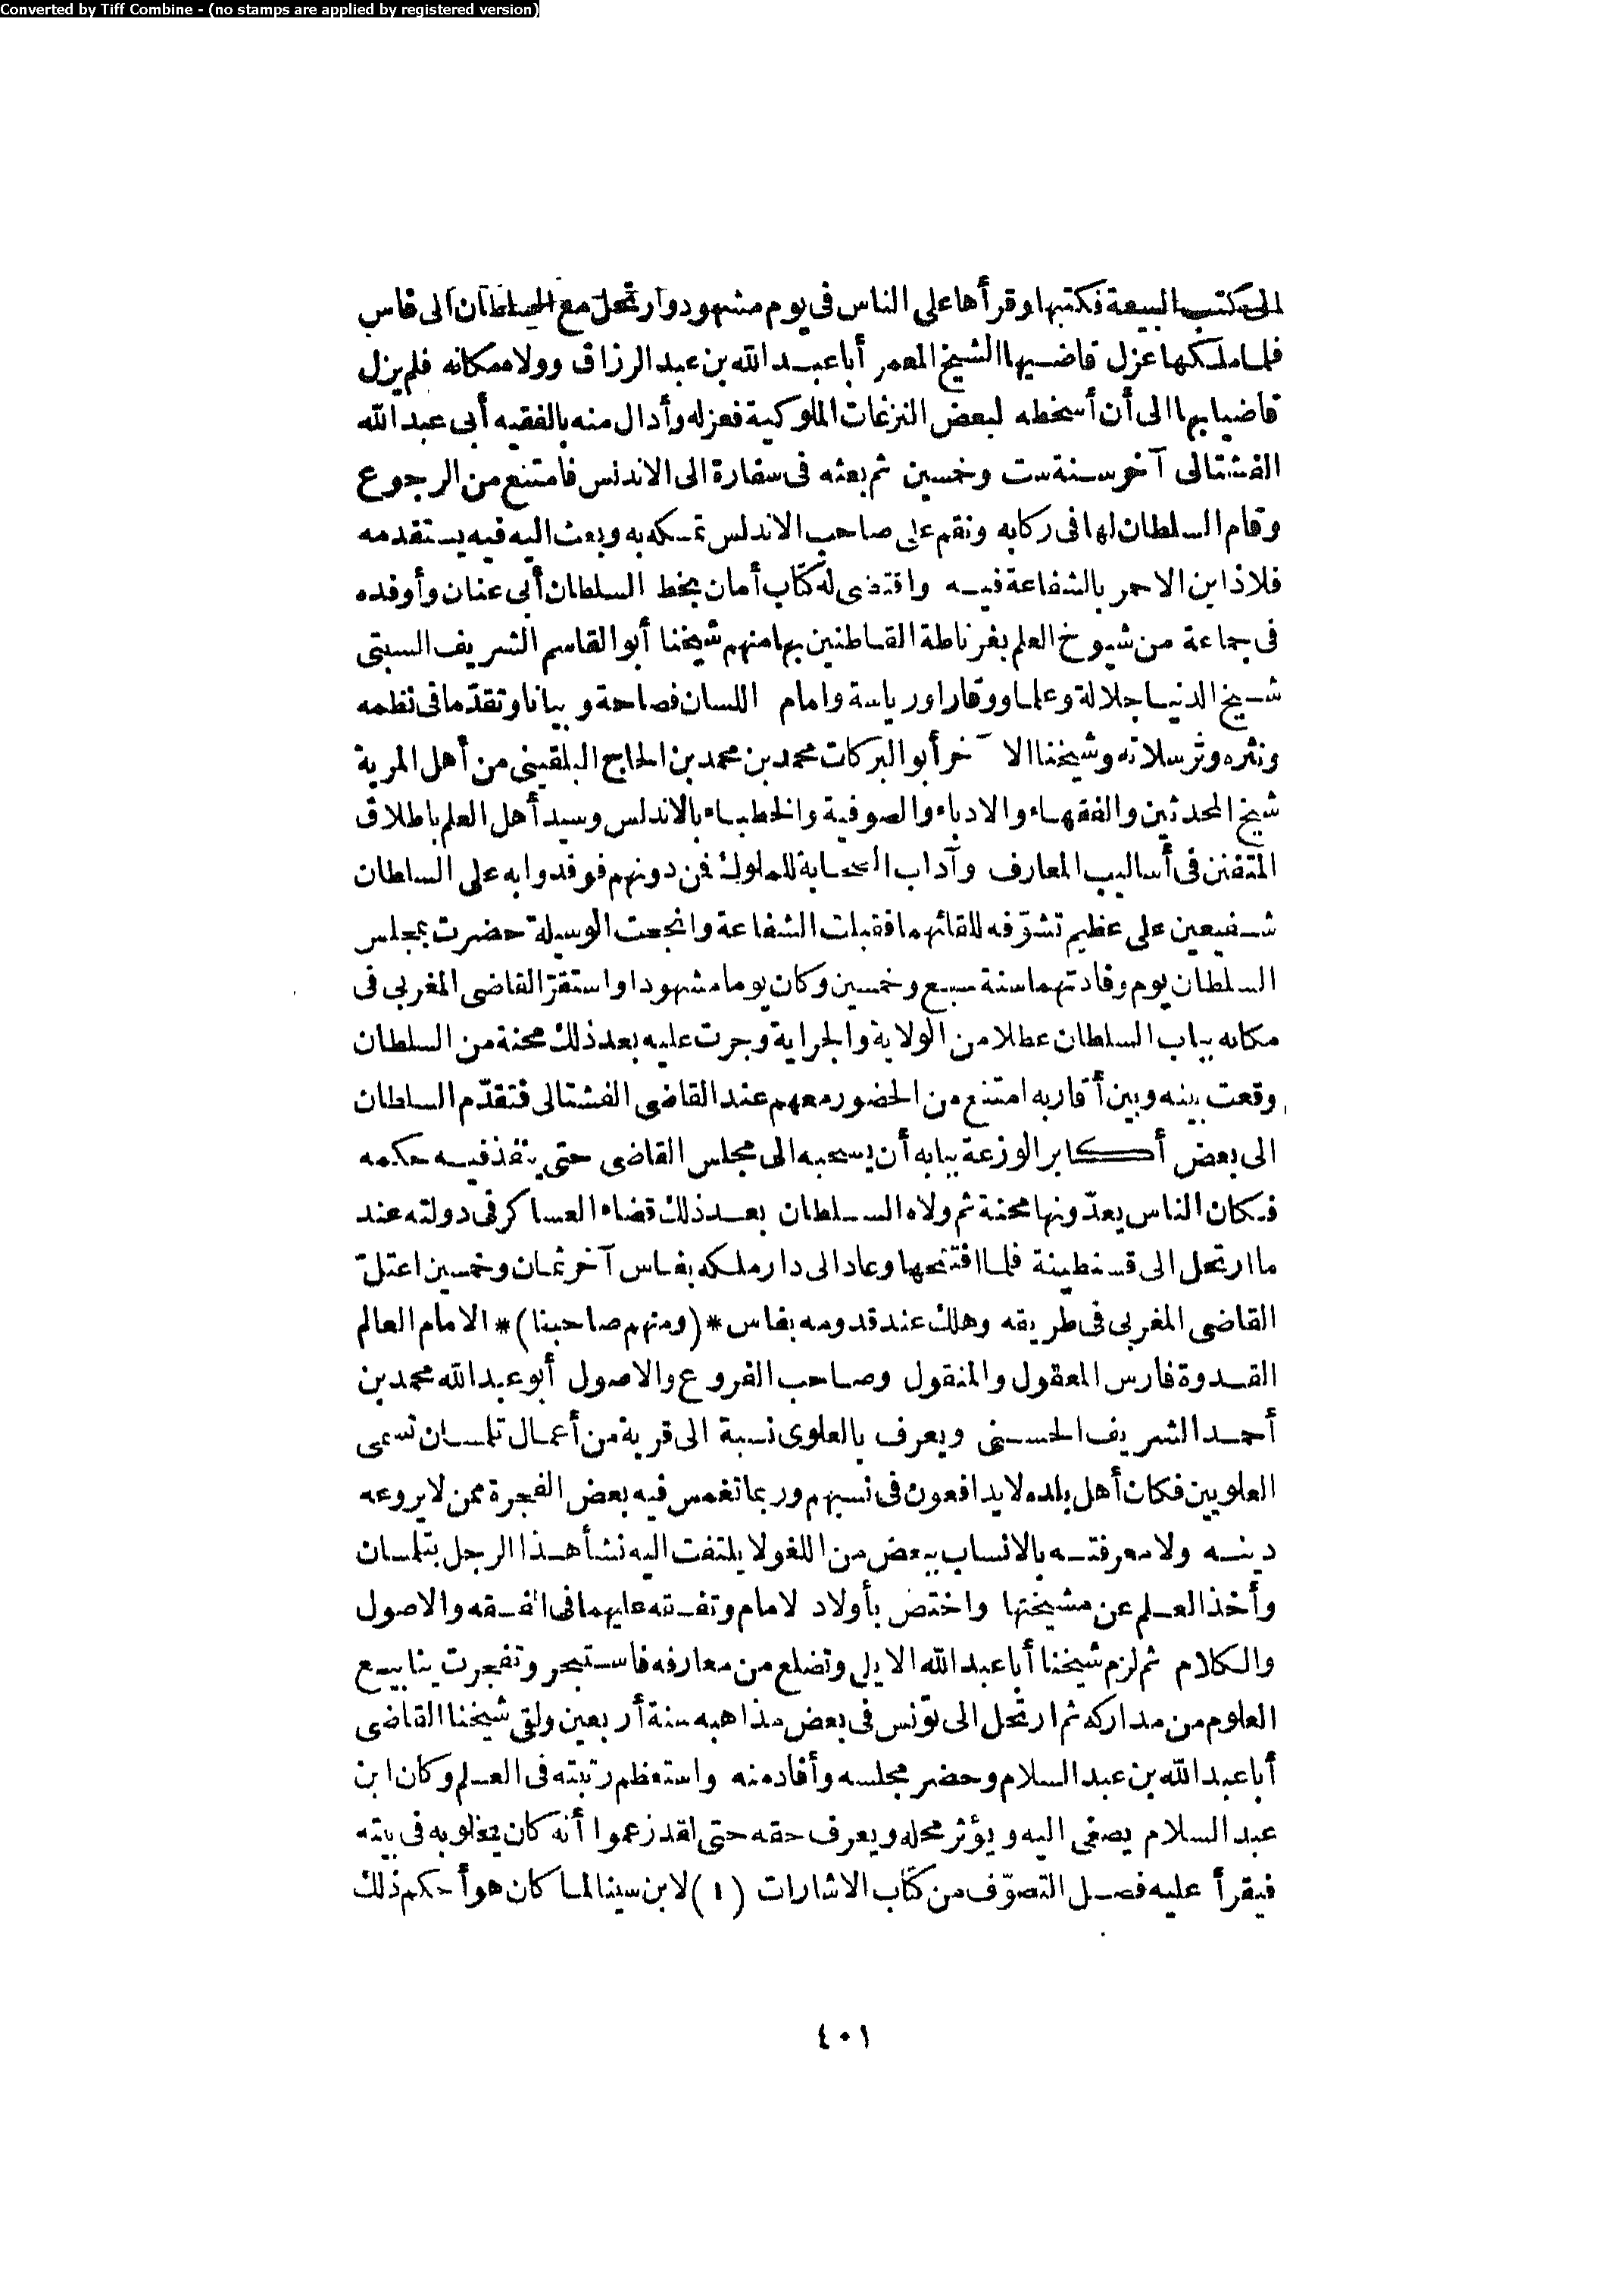 Converted by Tiff Combine - (no stamps are applied by registered version)
كتب البيعة فكتبها وقرأها على الناس فى يوم مشهود وارتحل مع السلطان الى فاس
فلما ملكها عزل قاضيها الشيخ المعمر أبا عبد الله بن عبد الرزاق وولاه مكانه فلم يزل
قاضيا بها الى أن أسخطه لبعض النزغات الملوكية فعزله وأدال منه بالفقيه أبى عبد الله
الفشتالى آخر سنة ست وخمسين ثم بعثه فى سفارة الى الاندلس فامتنع من الرجوع
وقام السلطان لها فى ركابه ونقم على صاحب الاندلس تمسكه به وبعث اليه فيه يستقدمه
فلاذ ابن الاحمر بالشفاعة فيه واقتضى له كتاب أمان بخط السلطان أبى عنان وأوفده
فى جماعة من شيوخ العلم بغرناطة القاطنين بها منهم شيخنا أبو القاسم الشريف السبتى
شيخ الدنيا جلالة وعلما ووقارا ورياسة وامام اللسان فصاحة وبيانا وتقدّما فى نظمه
ونثره وترسلاته وشيخنا الآخر أبو البركات محمد بن محمد بن الحاج البلقينى من أهل المرية
شيخ المحدثين والفقهاء والادباء والصوفية والخطباء بالاندلس وسيد أهل العلم باطلاق
المتفنن فى أساليب المعارف وآداب الصحابة للملوك فمن دونهم فوفدوا به على السلطان
شفيعين على عظيم تشوّفه للقائهما فقبلت الشفاعة وانجحت الوسيلة حضرت بمجلس
السلطان يوم وفادتهما سنة سبع وخمسين وكان يوما مشهودا واستقرّ القاضى المغربى فى
مكانه بباب السلطان عطلا من الولاية والجراية وجرت عليه بعد ذلك محنة من السلطان
وقعت بينه وبين أقاربه امتنع من الحضور معهم عند القاضى الفشتالى فتقدّم السلطان
الى بعض أكابر الوزعة ببابه أن يسحبه الى مجلس القاضى حتى ينفذ فيه حكمه
فكان الناس يعدّونها محنة ثم ولاه السلطان بعد ذلك قضاء العساكر فى دولته عند
ما ارتحل الى قسنطينة فلما افتتحها وعاد الى دار ملكه بفاس آخر ثمان وخمسين اعتلّ
القاضى المغربى فى طريقه وهلك عند قدومه بفاس *(ومنهم صاحبنا)* الامام العالم
القدوة فارس المعقول والمنقول وصاحب الفروع والاصول أبو عبد الله محمد بن
أحمد الشريف الحسنى ويعرف بالعلوى نسبة الى قرية من أعمال تلمسان تسمى
العلويين فكان أهل بلده لا يدافعون فى نسبهم وربما تغمس فيه بعض الفجرة ممن لا يروعه
دينه ولا معرفته بالانساب ببعض من اللغو لا يلتفت اليه نشأ هذا الرجل بتلمسان
وأخذ العلم عن مشيختها واختص بأولاد لامام وتفقه عليهما فى الفقه والاصول
والكلام ثم لزم شيخنا أبا عبد الله الابلى وتضلع من معارفه فاستبحر وتفجرت ينابيع
العلوم من مداركه ثم ارتحل الى تونس فى بعض مذاهبه سنة أربعين ولقى شيخنا القاضى
أبا عبد الله بن عبد السلام وحضر مجلسه وأفاد منه واستعظم رتبته فى العلم وكان ابن
عبد السلام يصغى اليه ويؤثر محله ويعرف حقه حتى لقد زعموا أنه كان يخلو به فى بيته
فيقرأ عليه فصل التصوّف من كتاب الاشارات (١) لابن سينا لما كان هو أحكم ذلك
٤٠١